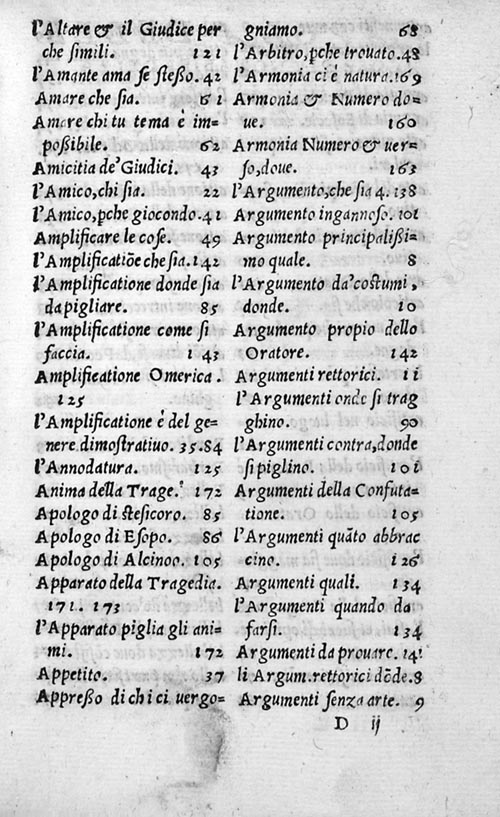 l'Altare & il Giudice per
che simili. 121
l'Amante ama se steßo. 42
Amare che sia. 61
Amare chi tu tema è im=
poßibile. 62
Amicitia de' Giudici. 43
l'Amico, chi sia. 22
l'Amico, ꝑche giocondo. 41
Amplificare le cose. 49
l'Amplificatiōe che sia. 142
l'Amplificatione donde sia
da pigliare. 85
l'Amplificatione come si
faccia. 143
Amplificatione Omerica.
125
l'Amplificatione è del ge=
nere dimostratiuo. 35.84
l'Annodatura. 125
Anima della Trage. 172
Apologo di stesicoro. 85
Apologo di Esopo. 86
Apologo di Alcinoo. 105
Apparato della Tragedia.
171. 173
l'Apparato piglia gli ani=
mi. 172
Appetito. 37
Appreßo di chi ci uergo=
gniamo. 68
l'Arbitro, ꝑche trouato. 48
l'Armonia ci è natura. 169
Armonia & Numero do=
ue. 160
Armonia Numero & uer=
so, doue. 163
l'Argumento, che sia 4. 138
Argumento ingannoso. 101
Argumento principalißi=
mo quale. 8
l'Argumento da' costumi,
donde. 10
Argumento propio dello
Oratore. 142
Argumenti rettorici. 11
l'Argumenti onde si trag
ghino. 90
l'Argumenti contra, donde
si piglino. 101
Argumenti della Confuta=
tione. 105
l'Argumenti quāto abbrac
cino. 126
Argumenti quali. 134
l'Argumenti quando da
farsi. 134
Argumenti da prouare. 141
li Argum. rettorici dōde. 8
Argumenti senza arte. 9
D ij